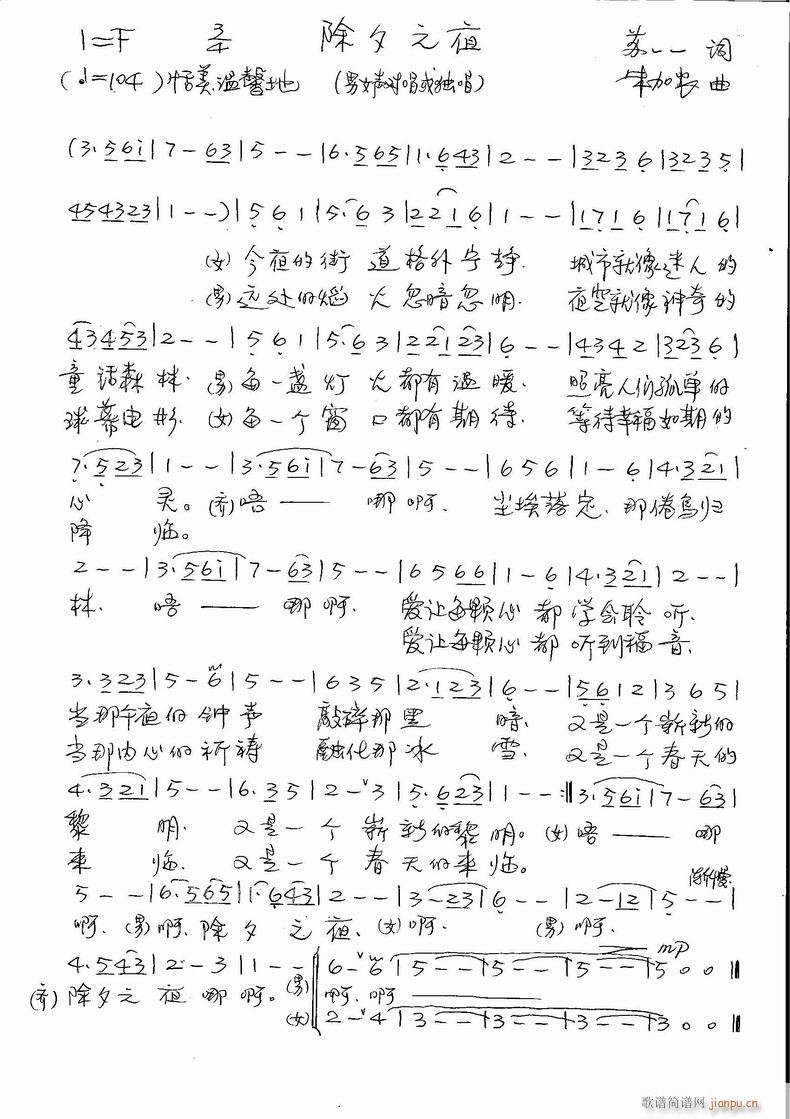 1=F 3/4 除夕之夜 苏一一 词
(♩=104) 恬美温馨地 (男女声对唱或独唱) 朱加农 曲
(3·56i|7-63|5--|6·565|1·643|2--|3236|3235|
454323|1--)|561|5·63|2216|1--|1716|1716|
(女)今夜的街道格外宁静. 城市就像迷人的
(男)远处的焰火忽暗忽明. 夜空就像神奇的
43453|2--|561|5·63|22123|6--|4342|3236|
童话森林. (男)每一盏灯火都有温暖. 照亮人们孤单的
球幕电影. (女)每一个窗口都有期待. 等待幸福如期的
7·523|1--|3·56i|7-63|5--|6561|1-6|4·321|
心灵。(齐)唔—— 哪啊. 尘埃落定. 那倦鸟归
降临。
2--|3·56i|7-63|5--|6566|1-6|4·321|2--|
林. 唔—— 哪啊. 爱让每颗心都学会聆听.
爱让每颗心都听到福音.
3·323|5-6|5--|635|2·123|6--|5612|365|
当那午夜的钟声 敲碎那黑暗. 又是一个崭新的
当那内心的祈祷 融化那冰雪. 又是一个春天的
4·321|5--|6·35|2-3|5·623|1--:‖3·56i|7-63|
黎明. 又是一个崭新的黎明。(女)唔—— 哪
来临. 又是一个春天的来临。
渐慢
5--|6·565|1·643|2--|3-23|6--|2-12|5--|
啊. (男)啊. 除夕之夜. (女)啊. (男)啊.
mp
4·543|2-3|1--|6-6|5--|5--|5--|500‖
(齐)除夕之夜哪啊。(男)啊.啊——
(女)2-4|3--|3--|3--|300‖
歌谱简谱网 jianpu.cn